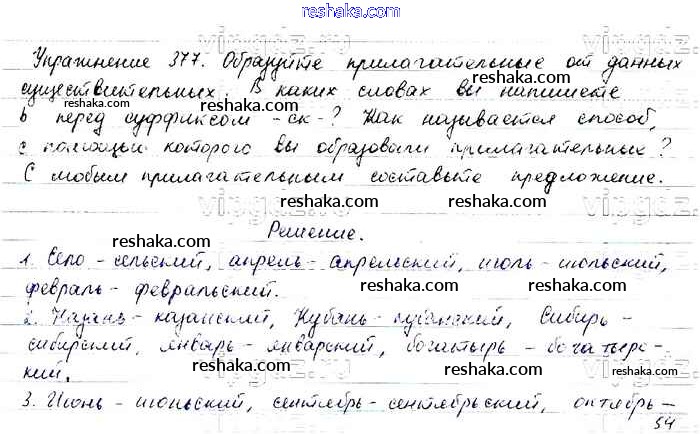 reshaka.com
Упражнение 377. Образуйте прилагательные от данных
существительных. В каких словах вы напишете
ь перед суффиксом -ск-? Как называется способ,
с помощью которого вы образовали прилагательных?
С любым прилагательным составьте предложение.
reshaka.com
Решение.
1. Село - сельский, апрель - апрельский, июль - июльский,
февраль - февральский.
2. Казань - казанский, Кубань - кубанский, Сибирь -
сибирский, январь - январский, богатырь - богатырс-
кий.
3. Июнь - июньский, сентябрь - сентябрьский, октябрь -
54